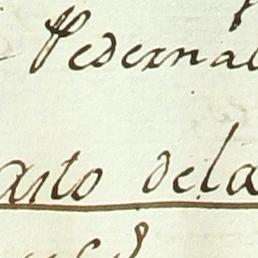 Pedernal
asto dela